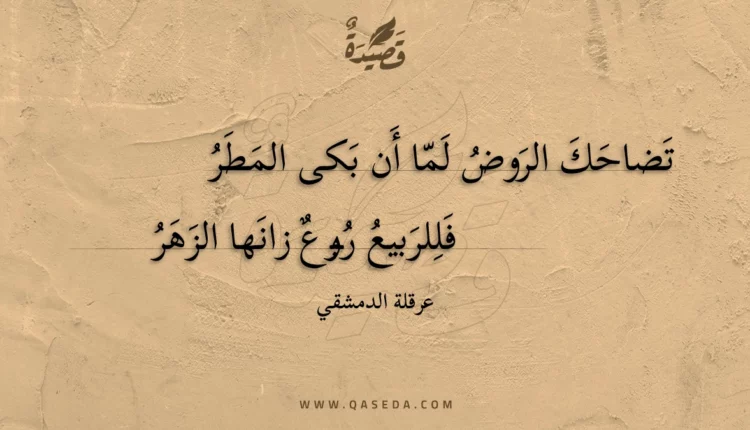 قَصِيدَةٌ
تَضاحَكَ الرَوضُ لَمّا أَن بَكى المَطَرُ
فَلِلرَبيعُ رُبوعٌ زانَها الزَهَرُ
عرقلة الدمشقي
WWW.QASEDA.COM